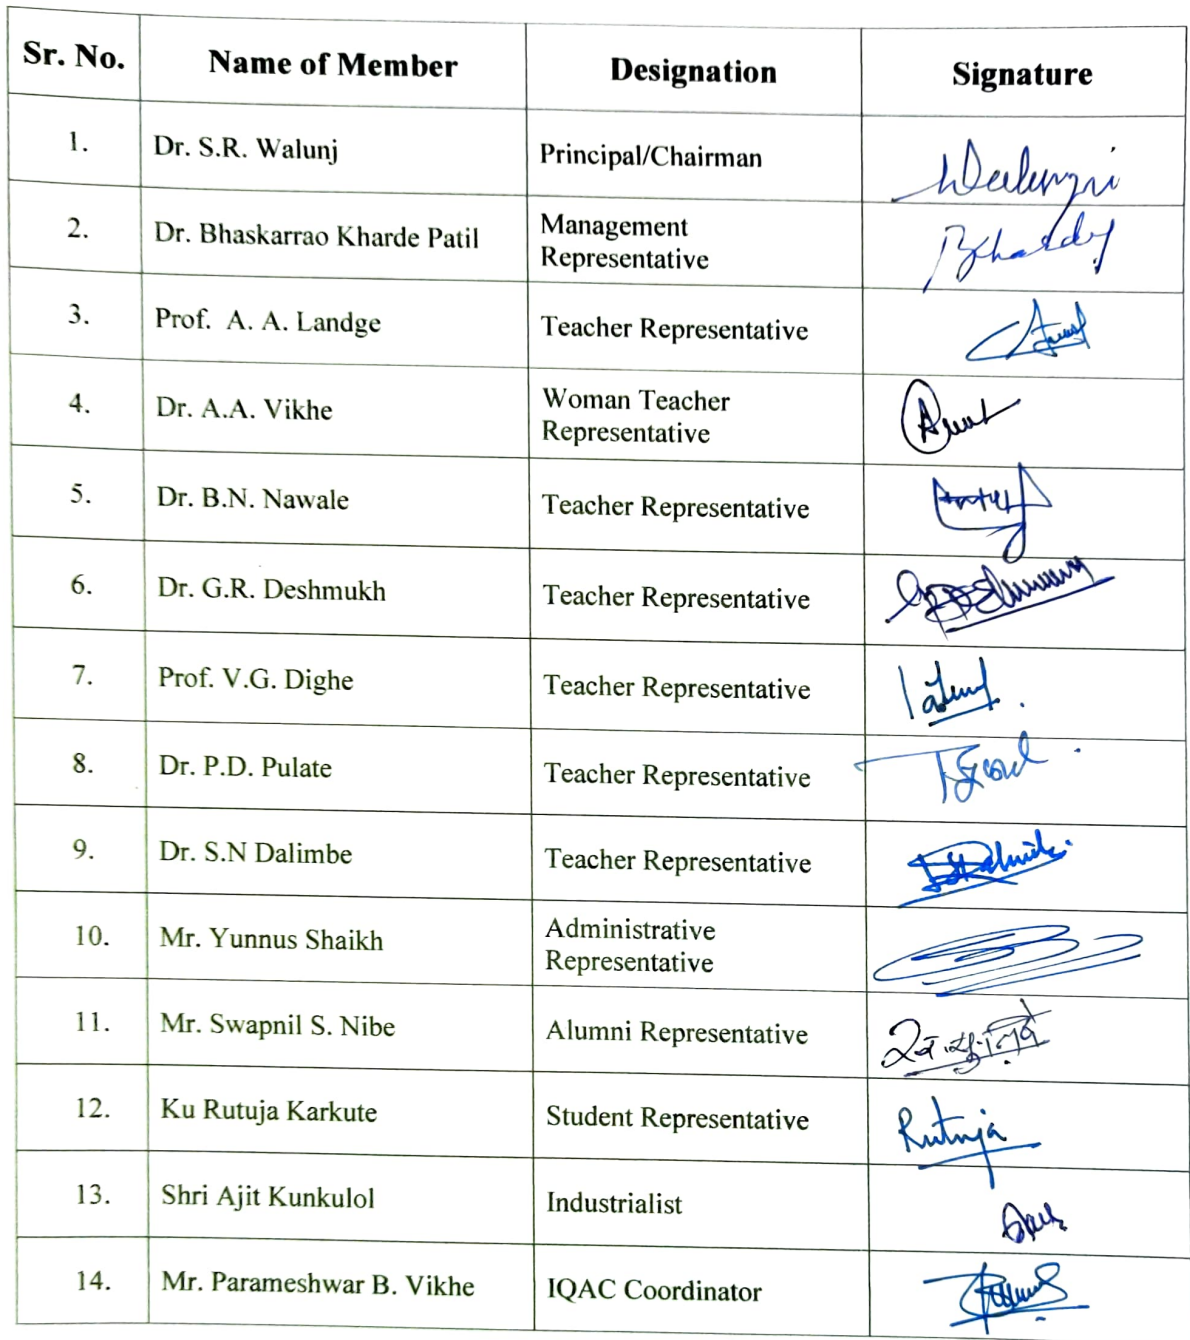 Sr. No. Name of Member Designation Signature
1. Dr. S.R. Walunj Principal/Chairman
2. Dr. Bhaskarrao Kharde Patil Management
Representative
3. Prof. A. A. Landge Teacher Representative
4. Dr. A.A. Vikhe Woman Teacher
Representative
5. Dr. B.N. Nawale Teacher Representative
6. Dr. G.R. Deshmukh Teacher Representative
7. Prof. V.G. Dighe Teacher Representative
8. Dr. P.D. Pulate Teacher Representative
9. Dr. S.N Dalimbe Teacher Representative
10. Mr. Yunnus Shaikh Administrative
Representative
11. Mr. Swapnil S. Nibe Alumni Representative
12. Ku Rutuja Karkute Student Representative Rutuja
13. Shri Ajit Kunkulol Industrialist
14. Mr. Parameshwar B. Vikhe IQAC Coordinator